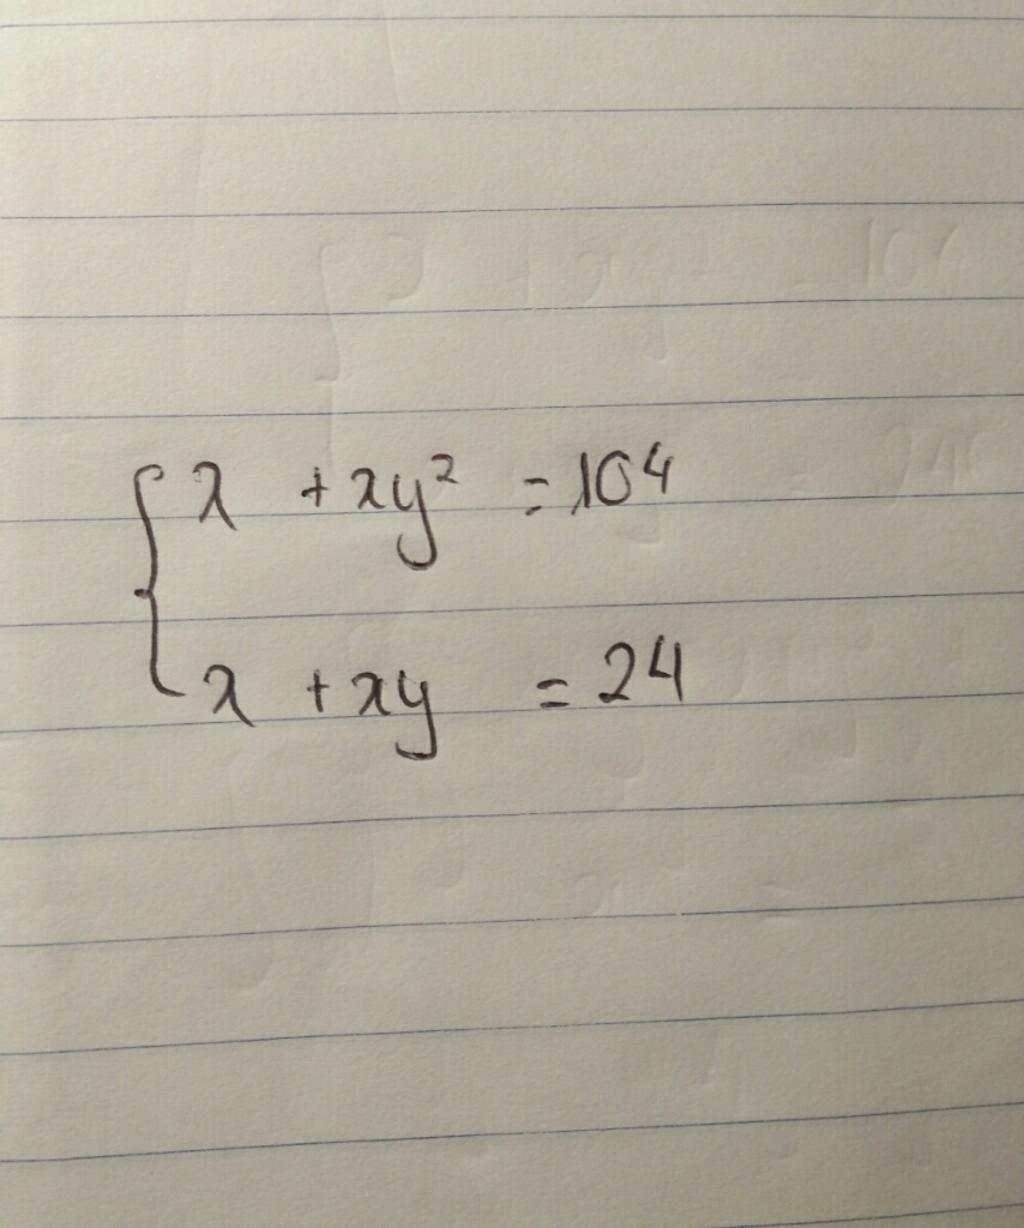 x + xy² = 104
x + xy = 24